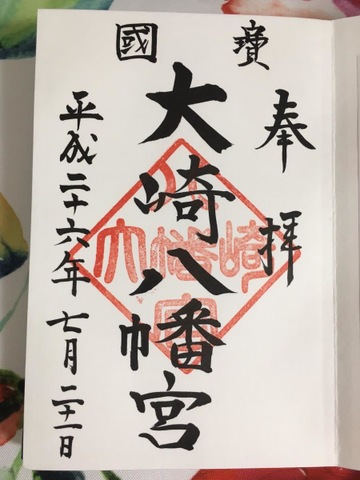 國寶
奉拝
大崎八幡宮
平成二十六年七月二十一日